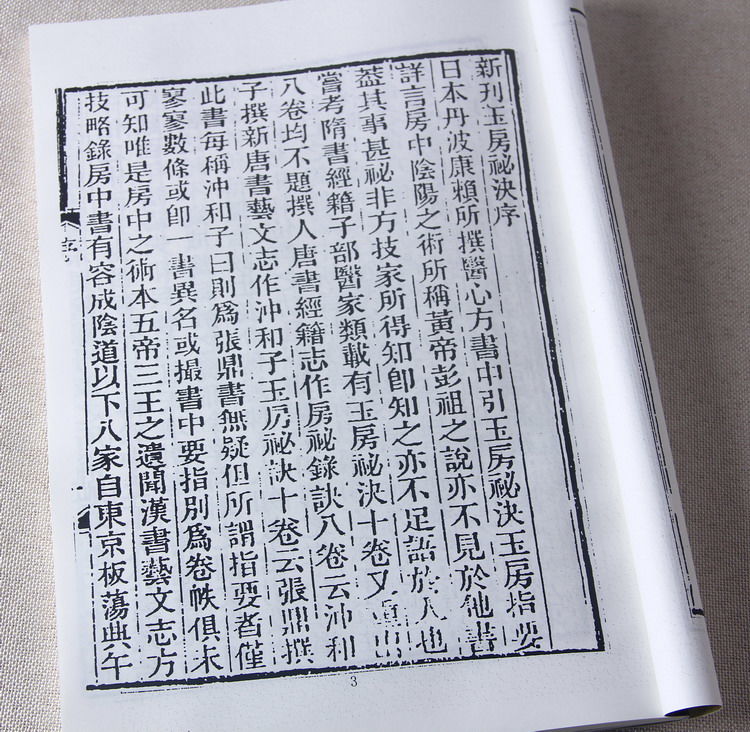 新刊玉房祕決序
日本丹波康頼所撰醫心方書中引玉房祕決玉房指要
詳言房中陰陽之術所稱黃帝彭祖之說亦不見於他書
葢其事甚祕非方技家所得知卽知之亦不足語於人也
嘗考隋書經籍子部醫家類載有玉房祕決十卷又重出
八卷均不題撰人唐書經籍志作房祕錄訣八卷云沖和
子撰新唐書藝文志作沖和子玉房祕訣十卷云張鼎撰
此書每稱沖和子曰則爲張鼎書無疑但所謂指要者僅
寥寥數條或卽一書異名或撮書中要指別爲卷帙俱未
可知唯是房中之術本五帝三王之遺聞漢書藝文志方
技略錄房中書有容成陰道以下八家自東京板蕩典午
序
3